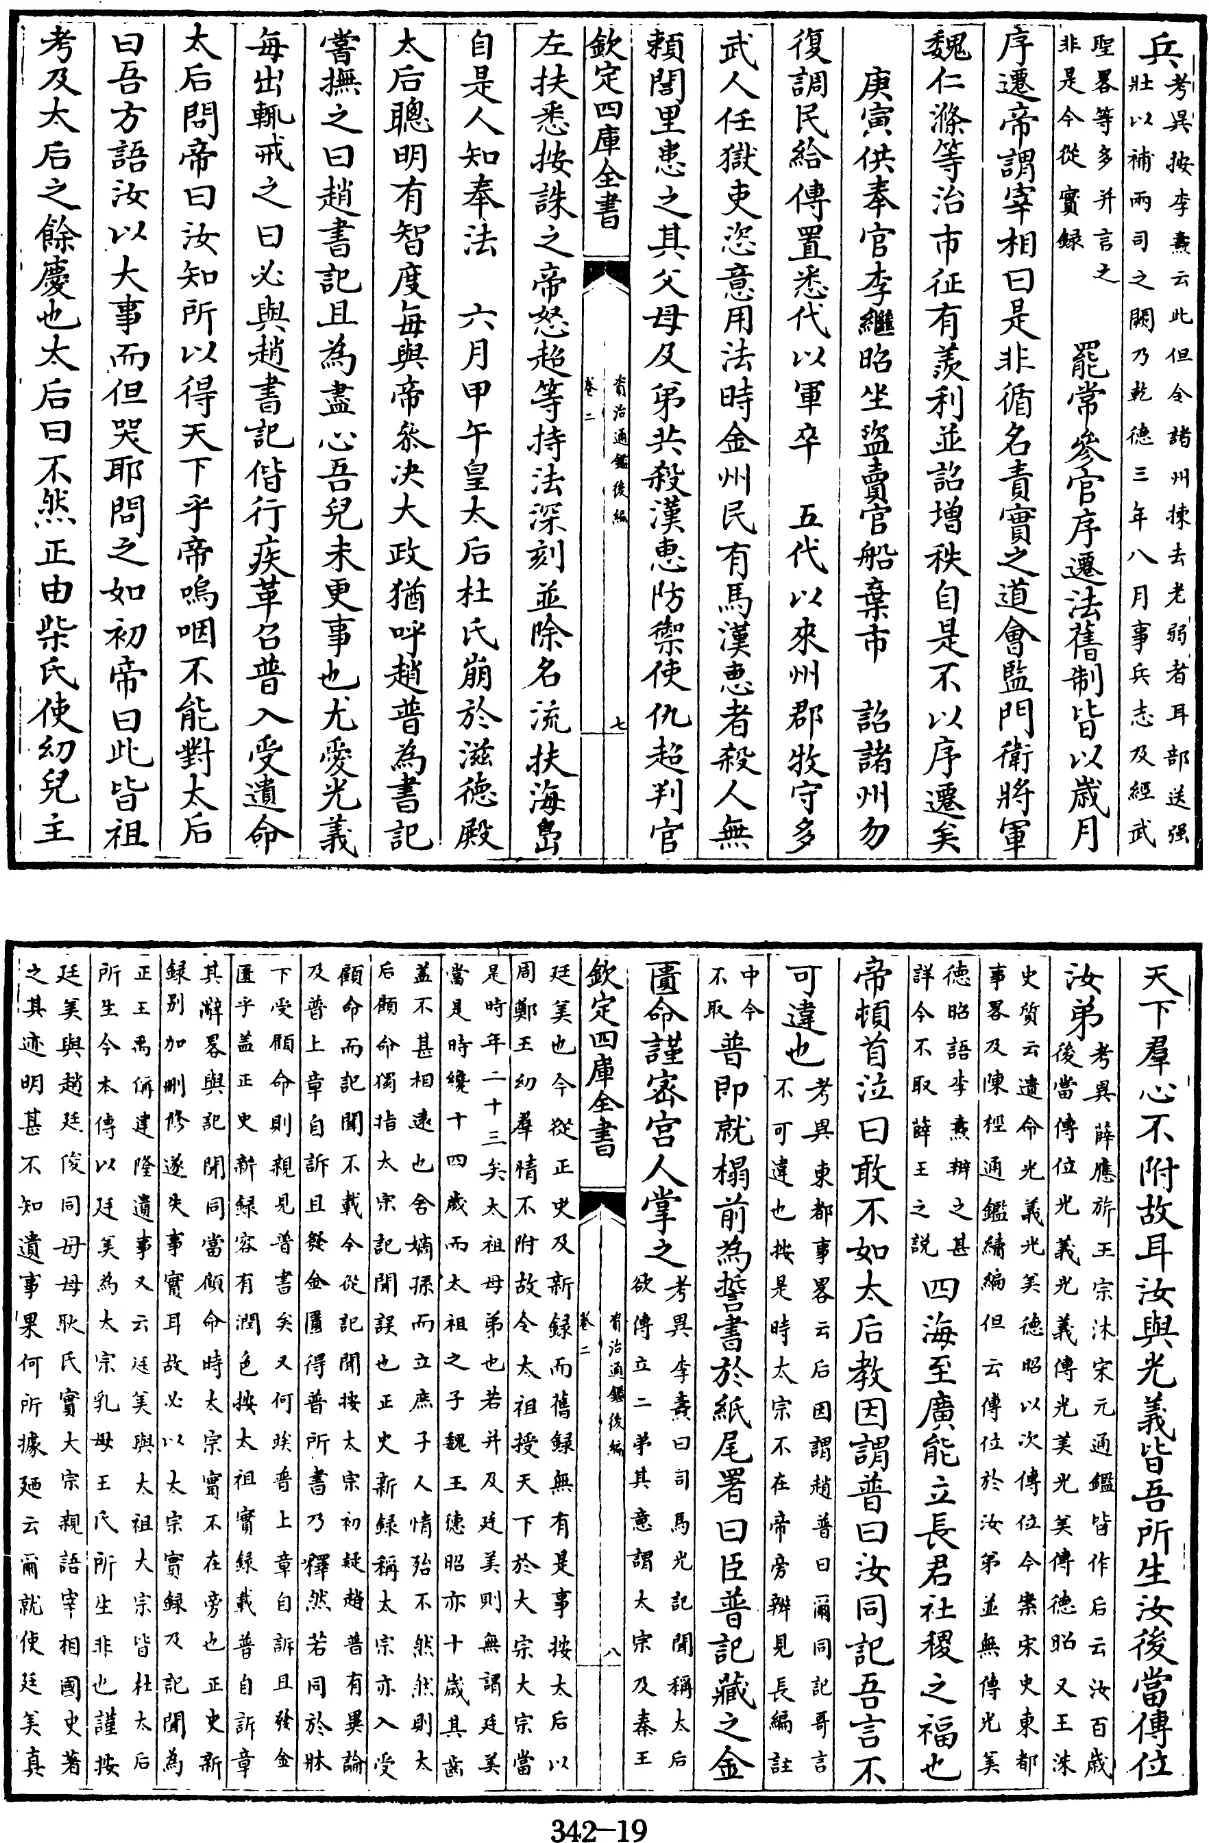 兵
考異按李燾云此但令諸州揀去老弱者耳部送强
壯以補兩司之闕乃乾德三年八月事兵志及經武
聖畧等多并言之
非是今從實録
罷常參官序遷法舊制皆以歲月
序遷帝謂宰相曰是非循名責實之道會監門衛將軍
魏仁滌等治市征有羨利並詔增秩自是不以序遷矣
庚寅供奉官李繼昭坐盜賣官船棄市 詔諸州勿
復調民給傳置悉代以軍卒 五代以來州郡牧守多
武人任獄吏恣意用法時金州民有馬漢惠者殺人無
賴閭里患之其父母及弟共殺漢惠防禦使仇超判官
欽定四庫全書
資治通鑑後編
卷二
七
左扶悉按誅之帝怒超等持法深刻並除名流扶海島
自是人知奉法 六月甲午皇太后杜氏崩於滋德殿
太后聰明有智度每與帝叅决大政猶呼趙普為書記
嘗撫之曰趙書記且為盡心吾兒未更事也尤愛光義
每出輒戒之曰必與趙書記偕行疾革召普入受遺命
太后問帝曰汝知所以得天下乎帝嗚咽不能對太后
曰吾方語汝以大事而但哭耶問之如初帝曰此皆祖
考及太后之餘慶也太后曰不然正由柴氏使幼兒主
天下羣心不附故耳汝與光義皆吾所生汝後當傳位
汝弟
考異薛應旂王宗沐宋元通鑑皆作后云汝百歲
後當傳位光義光義傳光美光美傳德昭又王洙
史質云遺命光義光美德昭以次傳位今案宋史東都
事畧及陳桱通鑑續編但云傳位於汝弟並無傳光美
德昭語李燾辨之甚
詳今不取薛王之説
四海至廣能立長君社稷之福也
帝頓首泣曰敢不如太后教因謂普曰汝同記吾言不
可違也
考異東都事畧云后因謂趙普曰爾同記哥言
不可違也按是時太宗不在帝旁辨見長編註
中今
不取
普即就榻前為誓書於紙尾署曰臣普記藏之金
匱命謹密宮人掌之
考異李燾曰司馬光記聞稱太后
欲傳立二弟其意謂太宗及秦王
欽定四庫全書
資治通鑑後編
卷二
八
廷美也今從正史及新録而舊録無有是事按太后以
周鄭王幼羣情不附故令太祖授天下於大宗大宗當
是時年二十三矣太祖母弟也若并及廷美則無謂廷美
當是時纔十四歲而太祖之子魏王德昭亦十歲其齒
蓋不甚相遠也舍嫡孫而立庶子人情殆不然然則太
后顧命獨指太宗記聞誤也正史新録稱太宗亦入受
顧命而記聞不載今從記聞按太宗初疑趙普有異論
及普上章自訴且發金匱得普所書乃釋然若同於牀
下受顧命則親見普書矣又何俟普上章自訴且發金
匱乎蓋正史新録容有潤色按太祖實録載普自訴章
其辭畧與記聞同當顧命時太宗實不在旁也正史新
録别加刪修遂失事實耳故必以太宗實録及記聞為
正王禹偁建隆遺事又云廷美與太祖大宗皆杜太后
所生今本傳以廷美為太宗乳母王氏所生非也謹按
廷美與趙廷俊同母母耿氏實大宗親語宰相國史著
之其迹明甚不知遺事果何所據廼云爾就使廷美真
342-19